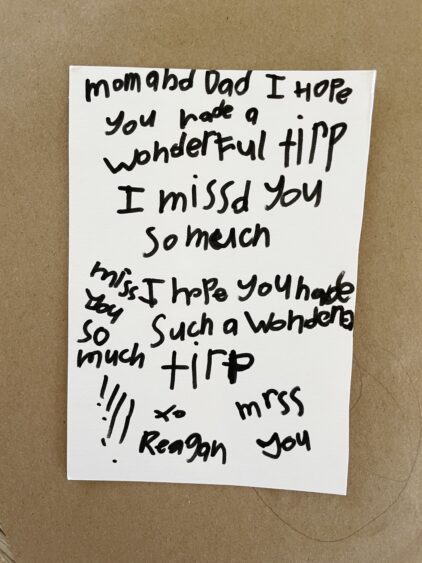 mom abd Dad I HOPE
You hade a
wonderful tirp
I missd you
so much
I hope you hade
Such a wonderf
tirp
miss
you
so
much
!!!!
xo
Reagan
miss
you